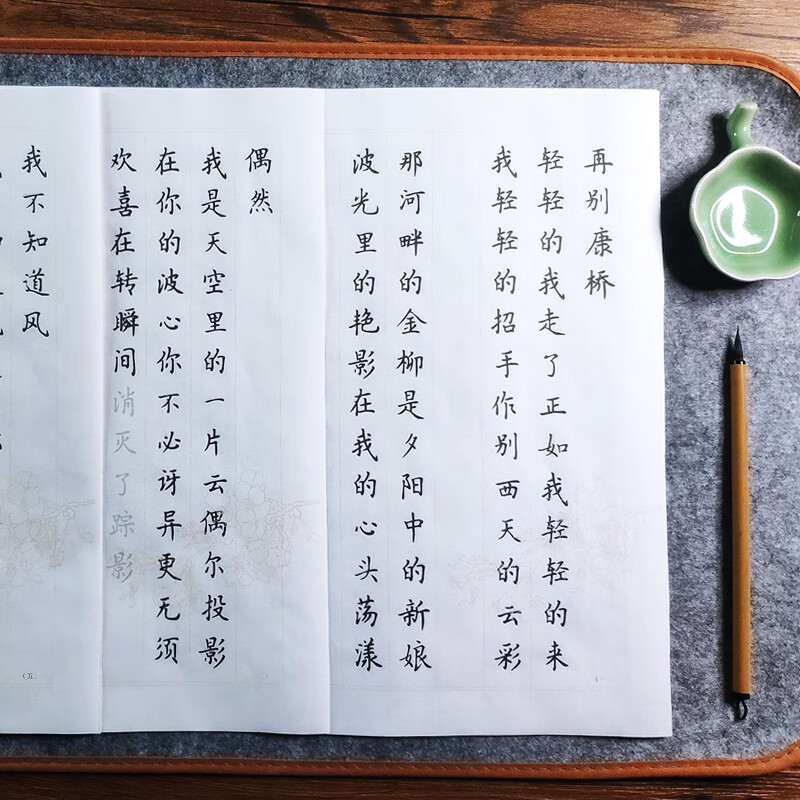 再别康桥
轻轻的我走了正如我轻轻的来
我轻轻的招手作别西天的云彩
那河畔的金柳是夕阳中的新娘
波光里的艳影在我的心头荡漾
偶然
我是天空里的一片云偶尔投影
在你的波心你不必讶异更无须
欢喜在转瞬间消灭了踪影
我不知道风